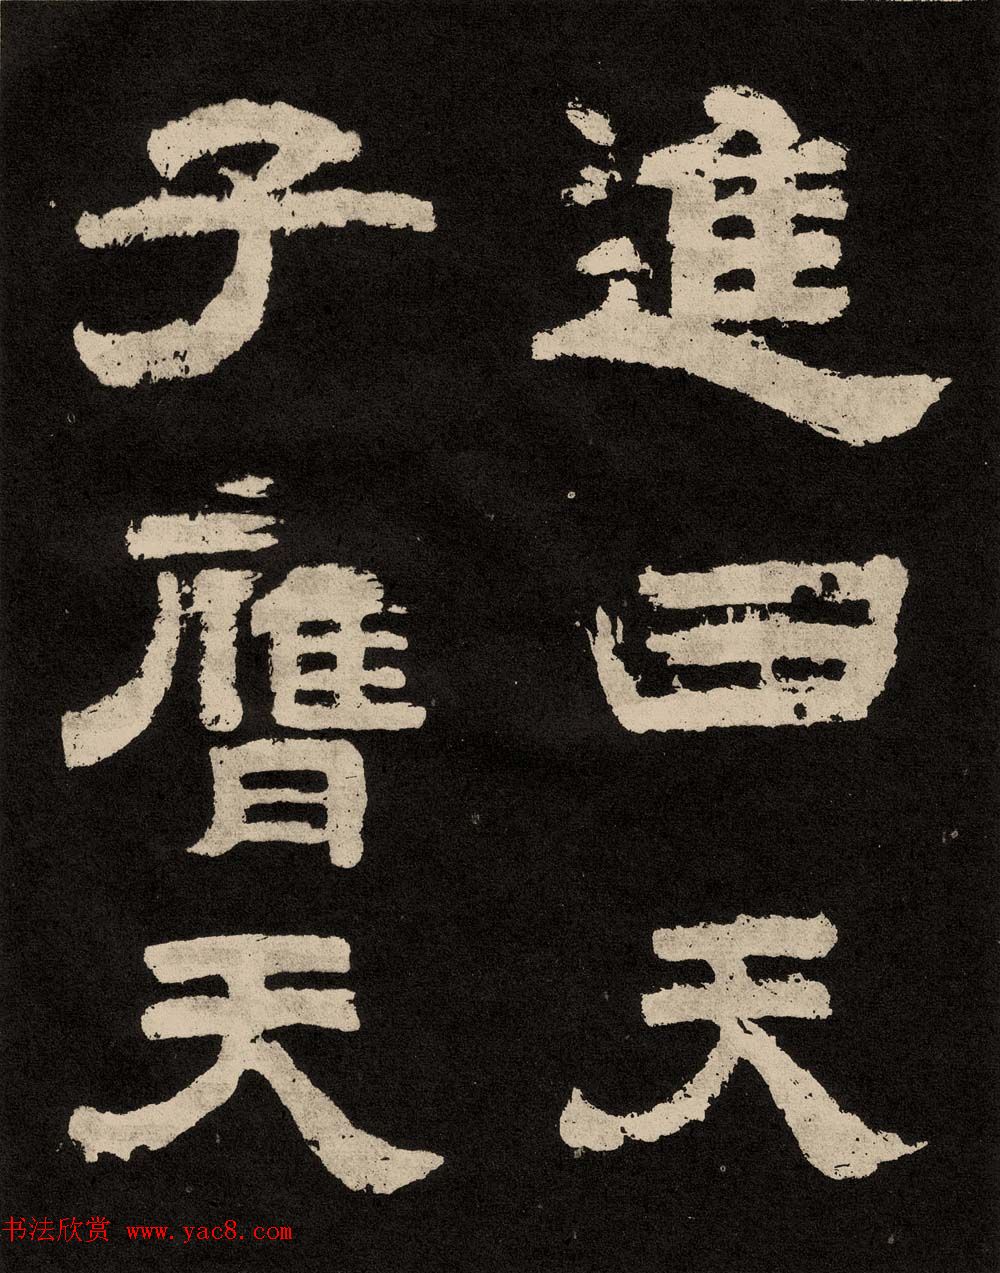 進曰天
子膺天
书法欣赏 www.yac8.com